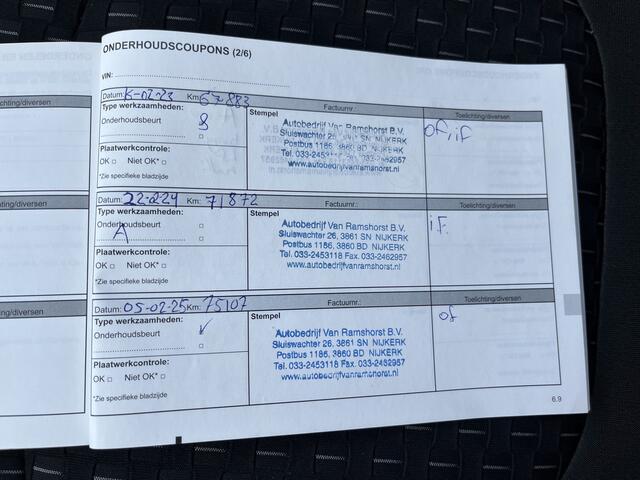 ONDERHOUDSCOUPONS (2/6)
VIN:
Datum: Km: 67883 Factuurnr.: Toelichting/diversen
Type werkzaamheden: Stempel
Onderhoudsbeurt
Autobedrijf Van Ramshorst B.V.
Sluiswachter 26, SN NIJKERK
Postbus 1186, 3860 BD NIJKERK
Tel. 033-2453118 Fax. 033-2462957
www.autobedrijfvanramshorst.nl
of, if
Plaatwerkcontrole:
OK Niet OK*
*Zie specifieke bladzijde
Datum: 22-2-24 Km: 71872 Factuurnr.: Toelichting/diversen
Type werkzaamheden: Stempel
Onderhoudsbeurt
A
Autobedrijf Van Ramshorst B.V.
Sluiswachter 26, 3861 SN NIJKERK
Postbus 1186, 3860 BD NIJKERK
Tel. 033-2453118 Fax. 033-2462957
www.autobedrijfvanramshorst.nl
if.
Plaatwerkcontrole:
OK Niet OK*
*Zie specifieke bladzijde
Datum: 05-02-25 Km: 75107 Factuurnr.: Toelichting/diversen
Type werkzaamheden: Stempel
Onderhoudsbeurt
Autobedrijf Van Ramshorst B.V.
Sluiswachter 26, 3861 SN NIJKERK
Postbus 1186, 3860 BD NIJKERK
Tel. 033-2453118 Fax. 033-2462957
www.autobedrijfvanramshorst.nl
of
Plaatwerkcontrole:
OK Niet OK*
*Zie specifieke bladzijde
6.9